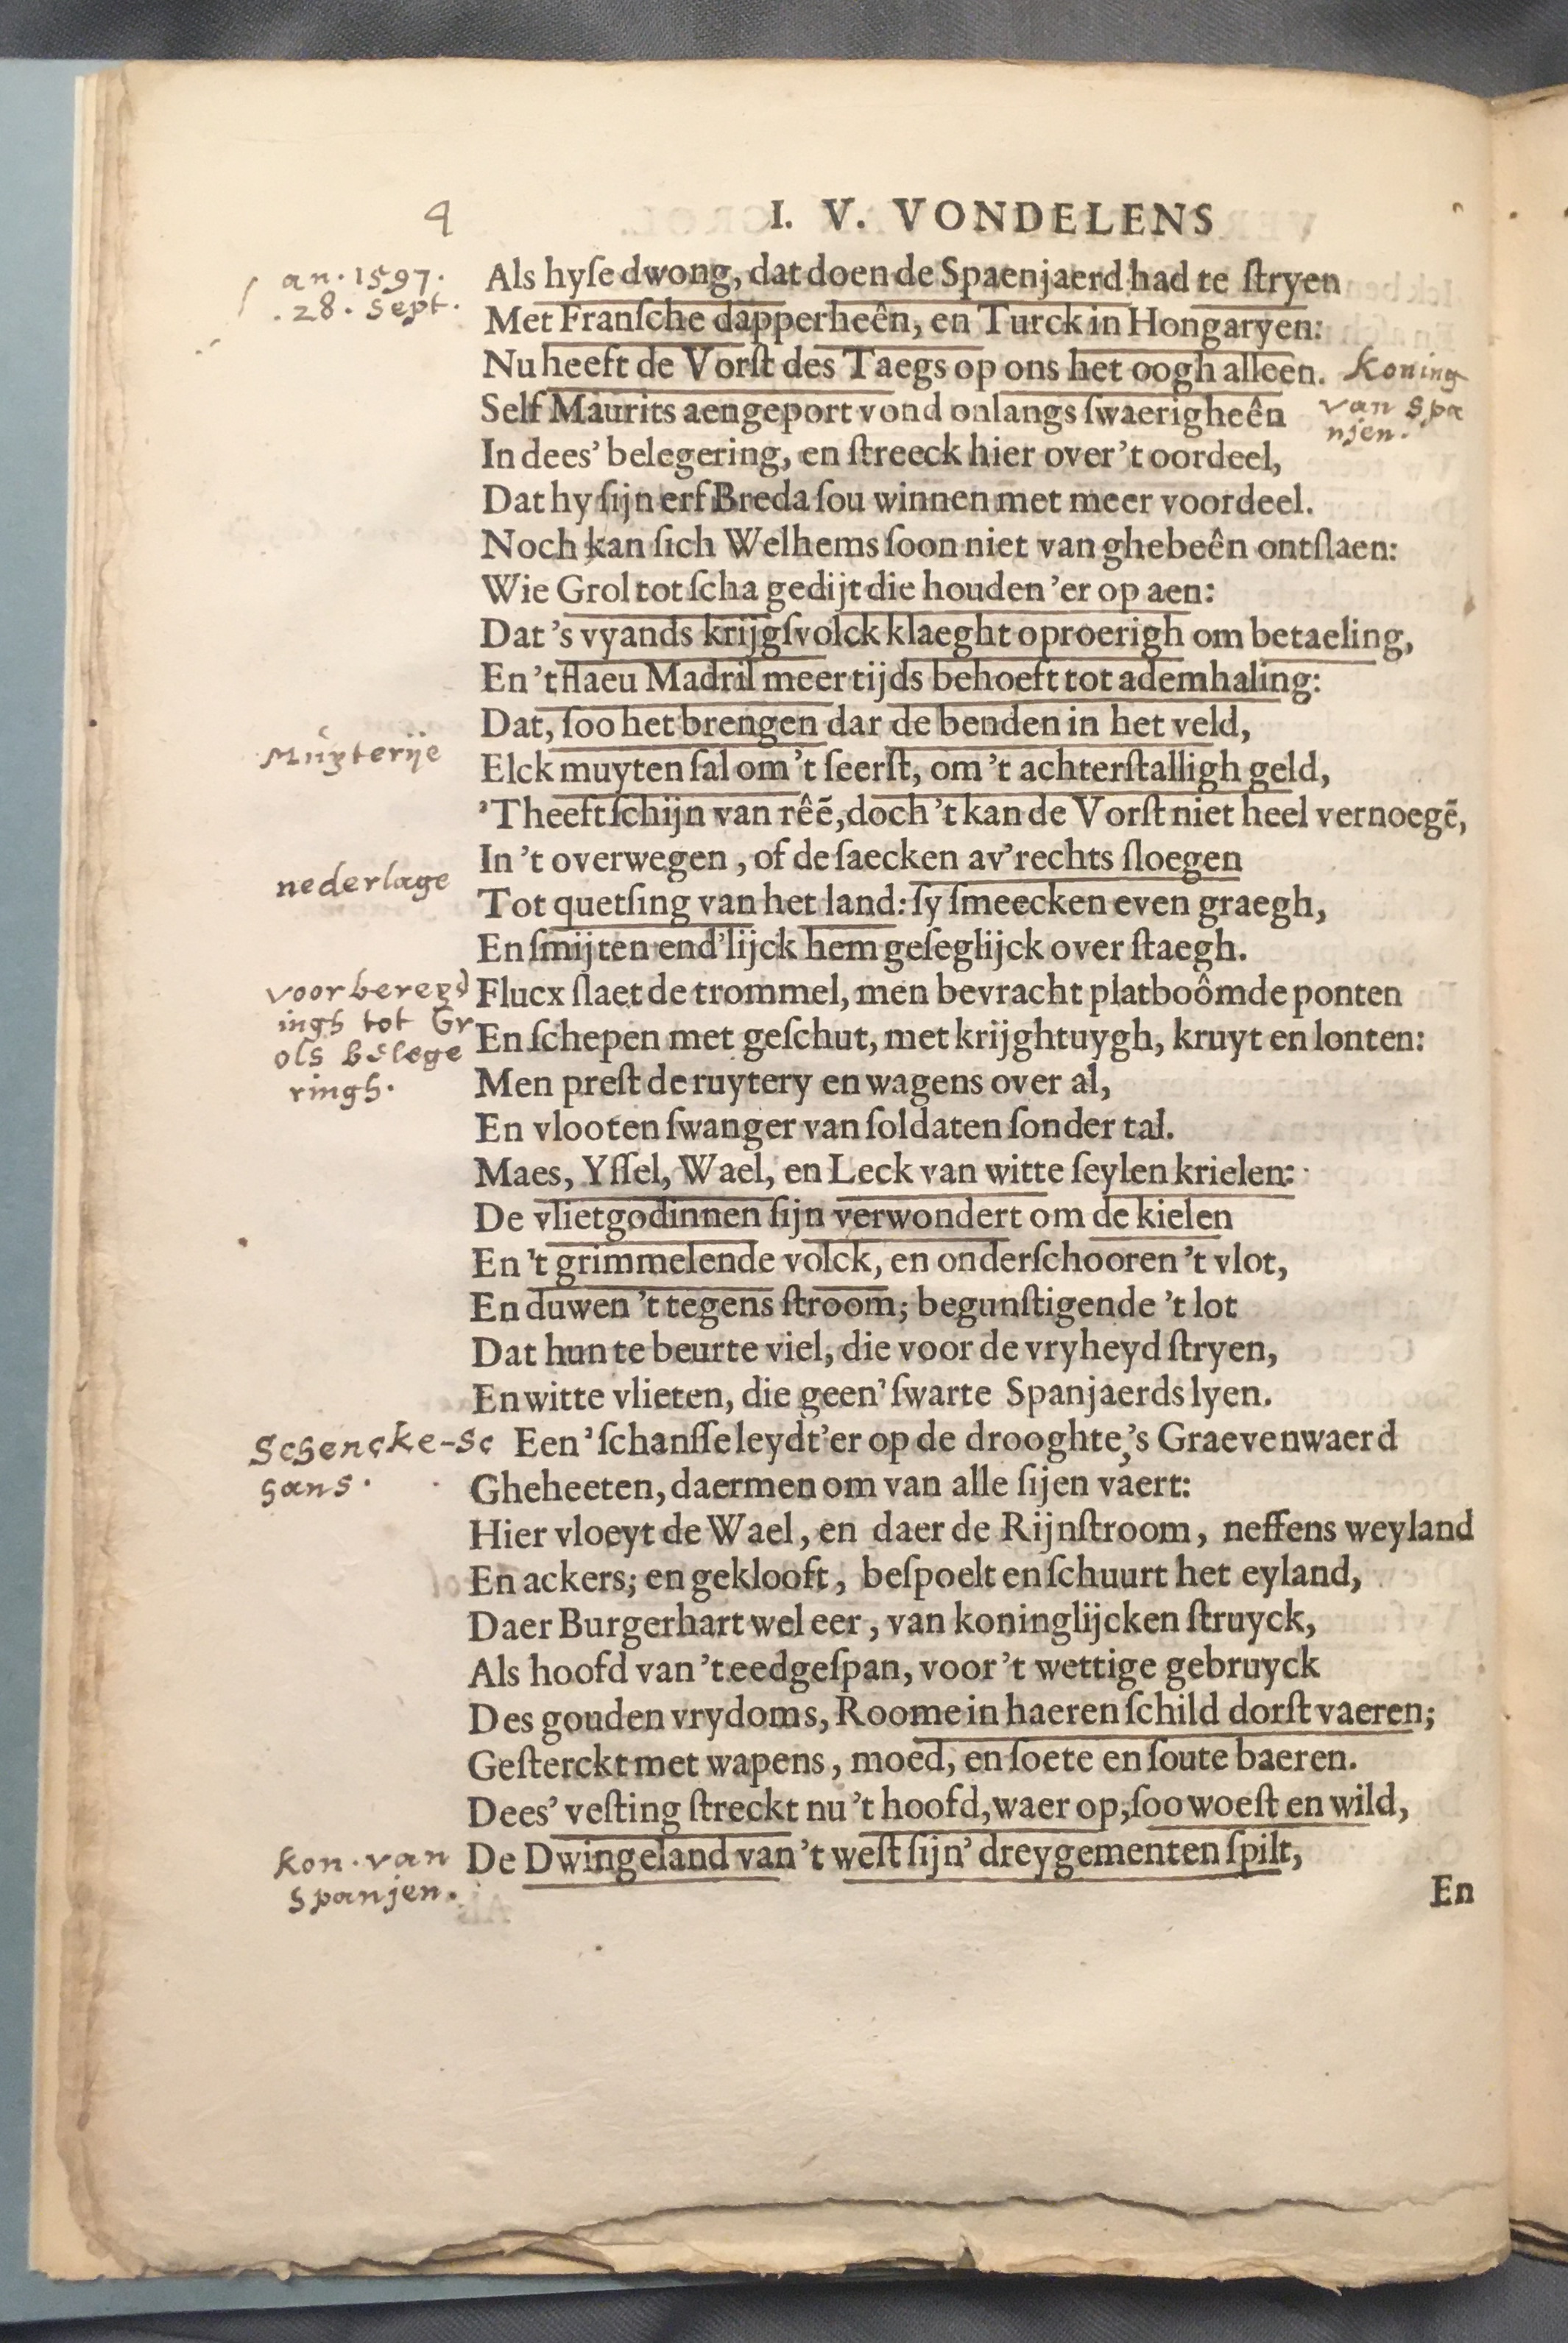 4
I. V. VONDELENS
an. 1597.
28. Sept.
Als hyſe dwong, dat doen de Spaenjaerd had te ſtryen
Met Franſche dapperheên, en Turck in Hongaryen:
Nu heeft de Vorſt des Taegs op ons het oogh alleen.
Koning
van Spa
njen.
Self Maurits aengeport vond onlangs ſwaerigheên
In dees' belegering, en ſtreeck hier over 't oordeel,
Dat hy ſijn erf Breda ſou winnen met meer voordeel.
Noch kan ſich Welhems ſoon niet van ghebeên ontſlaen:
Wie Grol tot ſcha gedijt die houden 'er op aen:
Dat 's vyands krijgſvolck klaeght oproerigh om betaeling,
En 't flaeu Madril meer tijds behoeft tot ademhaling:
Dat, ſoo het brengen dar de benden in het veld,
Muyterije
Elck muyten ſal om 't ſeerſt, om 't achterſtalligh geld,
'T heeft ſchijn van rêẽ, doch 't kan de Vorſt niet heel vernoegẽ,
In 't overwegen, of de ſaecken av'rechts ſloegen
nederlage
Tot quetſing van het land: ſy ſmeecken even graegh,
En ſmijten end'lijck hem geſeglijck over ſtaegh.
voorbereyd
ingh tot Gr
ols belege
ringh.
Flucx ſlaet de trommel, men bevracht platboômde ponten
En ſchepen met geſchut, met krijghtuygh, kruyt en lonten:
Men preſt de ruytery en wagens over al,
En vlooten ſwanger van ſoldaten ſonder tal.
Maes, Yſſel, Wael, en Leck van witte ſeylen krielen:
De vlietgodinnen ſijn verwondert om de kielen
En 't grimmelende volck, en onderſchooren 't vlot,
En duwen 't tegens ſtroom; begunſtigende 't lot
Dat hun te beurte viel, die voor de vryheyd ſtryen,
En witte vlieten, die geen' ſwarte Spanjaerds lyen.
Schencke-sc
hans.
Een' ſchanſſe leydt'er op de drooghte, 's Graevenwaerd
Gheheeten, daermen om van alle ſijen vaert:
Hier vloeyt de Wael, en daer de Rijnſtroom, neffens weyland
En ackers; en geklooft, beſpoelt en ſchuurt het eyland,
Daer Burgerhart wel eer, van koninglijcken ſtruyck,
Als hoofd van 't eedgeſpan, voor 't wettige gebruyck
Des gouden vrydoms, Roome in haeren ſchild dorſt vaeren;
Geſterckt met wapens, moed, en ſoete en ſoute baeren.
Dees' veſting ſtreckt nu 't hoofd, waer op, ſoo woeſt en wild,
kon. van
Spanjen.
De Dwingeland van 't weſt ſijn' dreygementen ſpilt,
En